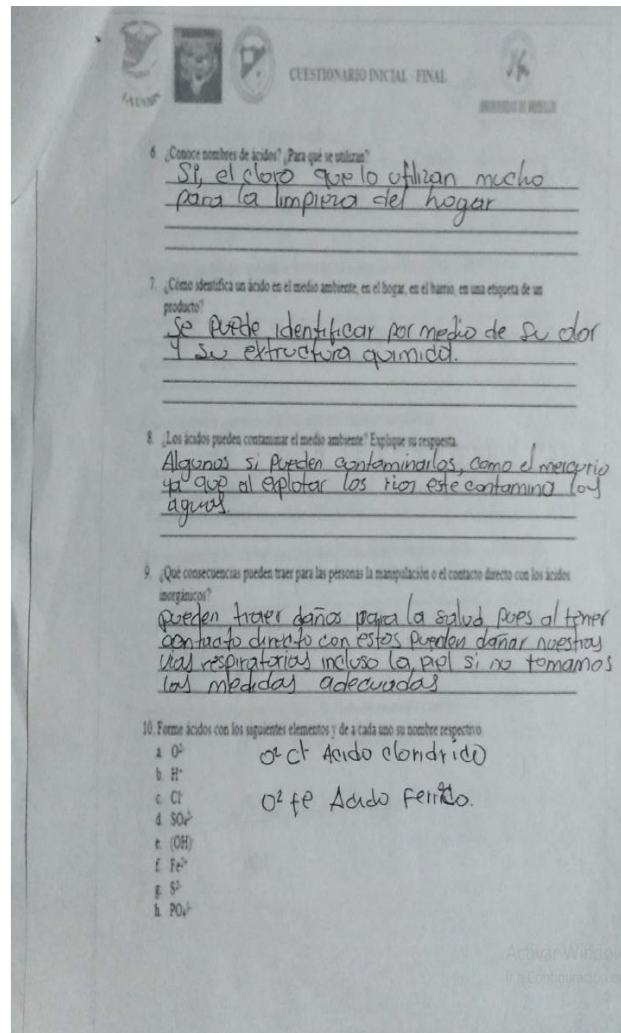 CUESTIONARIO INICIAL - FINAL
6. ¿Conoce nombres de ácidos? ¿Para qué se utilizan?
Si, el cloro que lo utilizan mucho
para la limpieza del hogar
7. ¿Cómo identifica un ácido en el medio ambiente, en el hogar, en el barrio, en una etiqueta de un
producto?
Se puede identificar por medio de su olor
y su extructura quimica.
8. ¿Los ácidos pueden contaminar el medio ambiente? Explique su respuesta.
Algunos si pueden contaminarlos, como el mercurio
ya que al explotar los rios este contamina las
aguas.
9. ¿Qué consecuencias pueden traer para las personas la manipulación o el contacto directo con los ácidos
inorgánicos?
pueden traer daños para la salud pues al tener
contacto directo con estos pueden dañar nuestras
vias respiratorias incluso la piel si no tomamos
las medidas adecuadas
10. Forme ácidos con los siguientes elementos y de a cada uno su nombre respectivo.
a. O²⁻
O² Cl⁻ Acido clondrido
b. H⁺
c. Cl⁻
O² fe Acido Ferrico.
d. SO₄²⁻
e. (OH)⁻
f. Fe³⁺
g. S²⁻
h. PO₄³⁻
Activar Window
Ir a Configuración